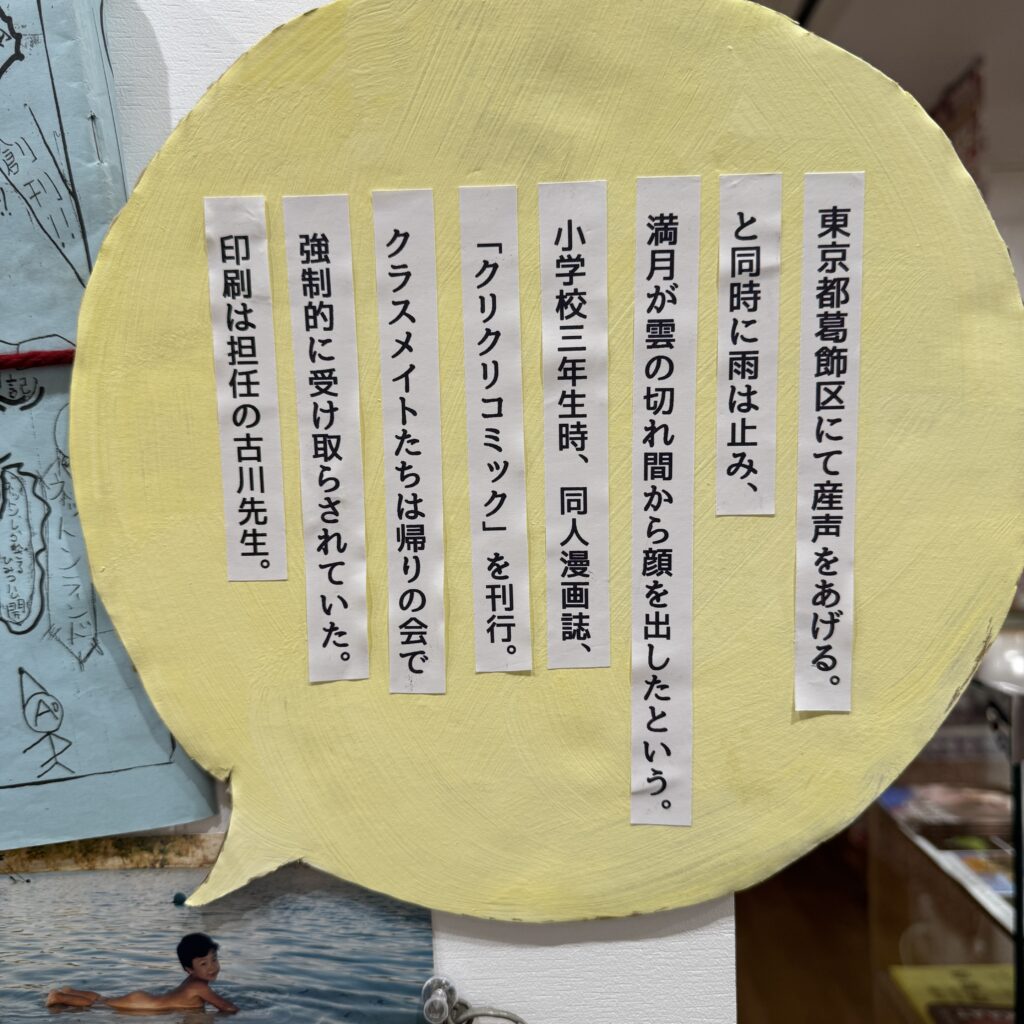 東京都葛飾区にて産声をあげる。
と同時に雨は止み、
満月が雲の切れ間から顔を出したという。
小学校三年生時、同人漫画誌、
「クリクリコミック」を刊行。
クラスメイトたちは帰りの会で
強制的に受け取らされていた。
印刷は担任の古川先生。
創刊!!